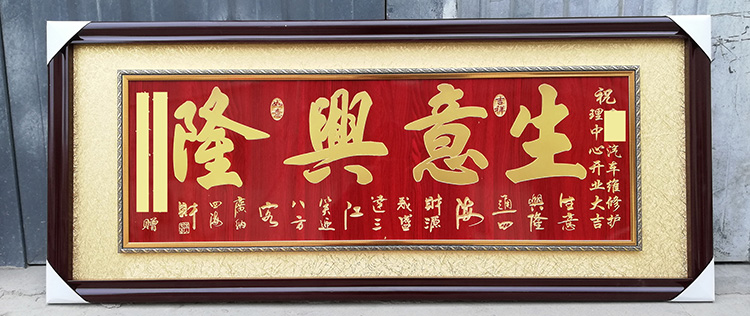 祝 汽车维修护
理中心开业大吉
生意興隆
吉祥
如意
生意
興隆
通四
海
財源
茂盛
達三
江
笑迎
八方
客
廣納
四海
財
赠